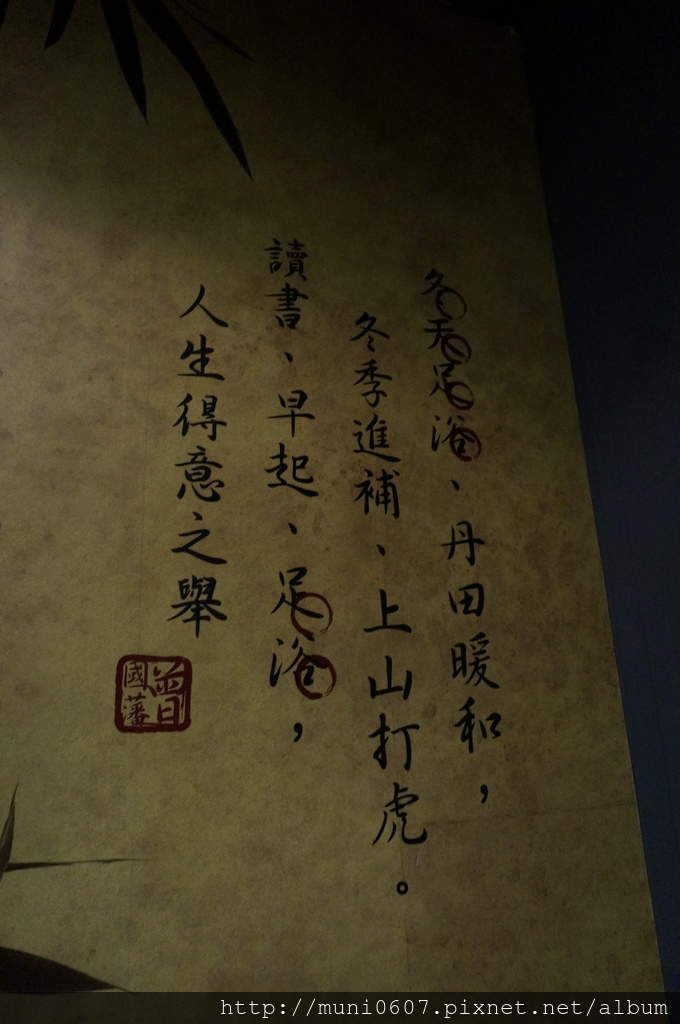 冬天足浴、丹田暖和，
冬季進補、上山打虎。
讀書、早起、足浴，
人生得意之舉
曾國藩
http://muni0607.pixnet.net/album